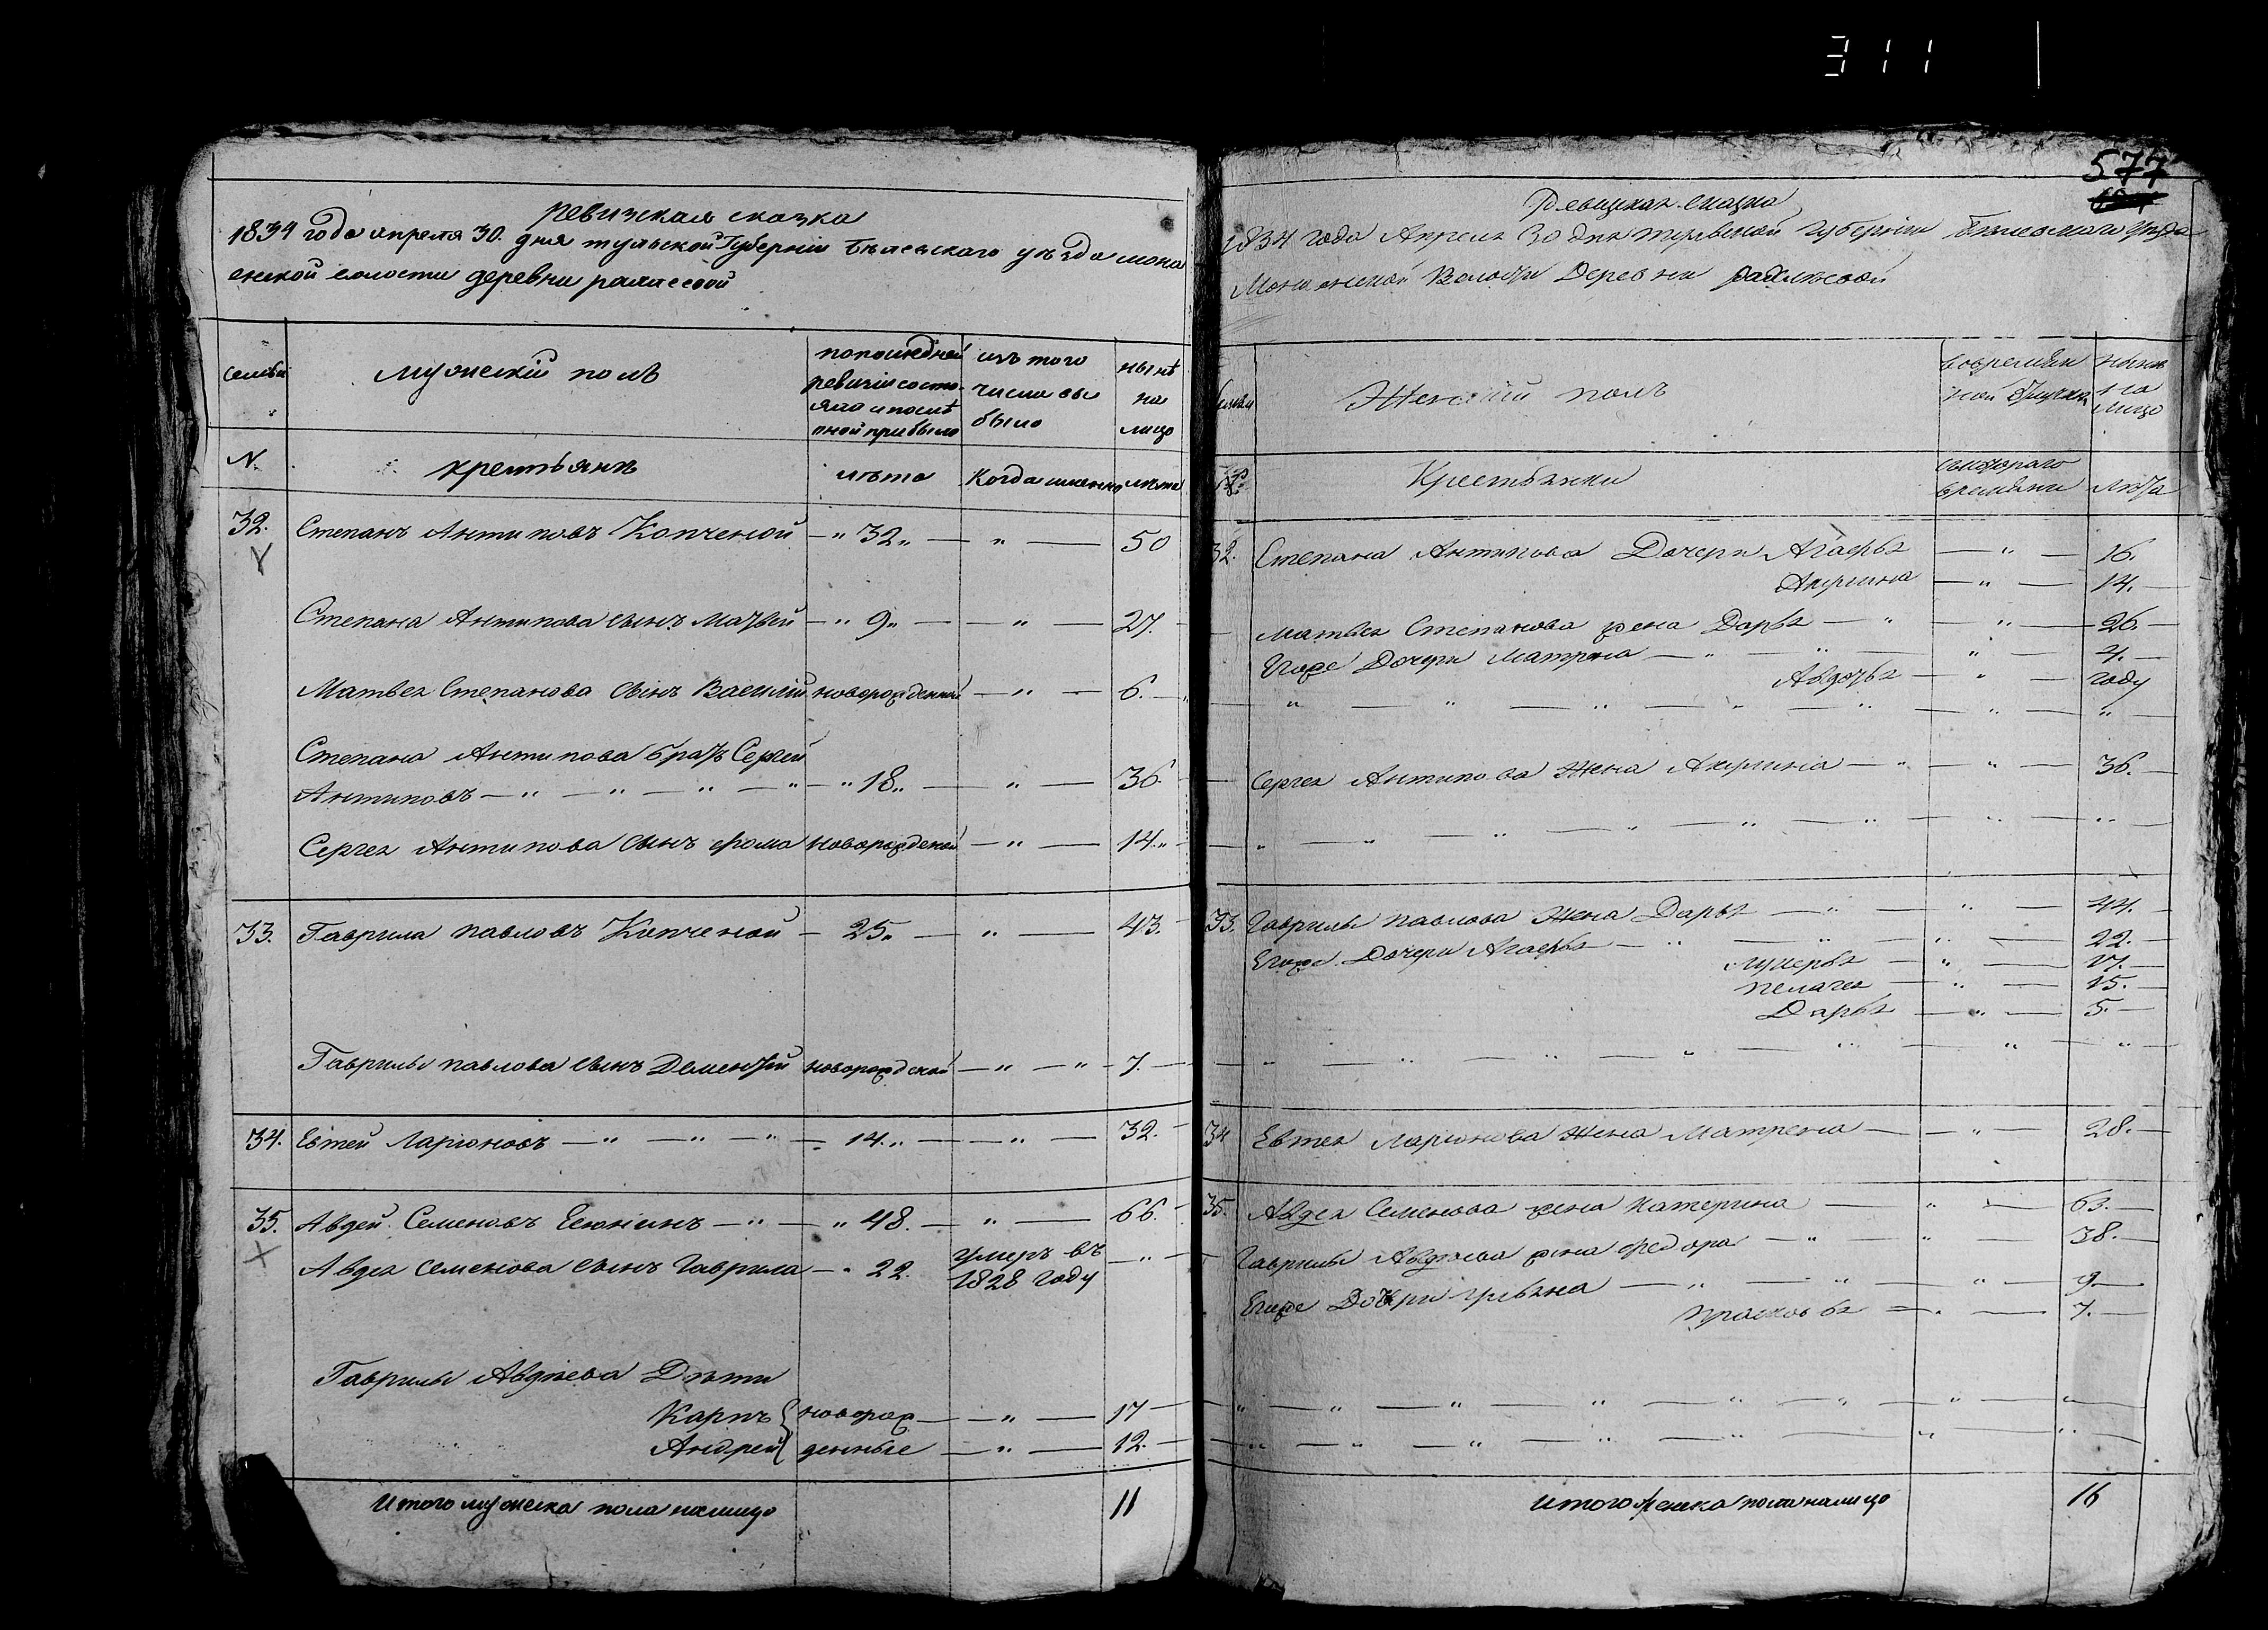 311
ревизская сказка
1834 года апреля 30. дня тульской Губерніи Бѣлевскаго уѣзда мона
енской волости деревни
семьи
мужескій полъ
попоследней ревизіи состо- яло и послѣ оной прибыло
изъ того числа вы было
нынѣ на лицо
N.
крестьянъ
лѣта
Когда именно
лѣта
32. Степанъ Антиповъ Копченой — „ 32 „ — „ — 50
Степана Антипова сынъ Матвей — „ 9 „ — „ — 27.
Матвея Степанова сынъ Василій новорожденной — „ — 6.
Степана Антипова братъ Сергей
Антиповъ — „ — „ — „ — „ — „ 18 „ — „ — 36.
Сергея Антипова сынъ Фома новорожденой — „ — 14 „
33. Гаврила павловъ Копченой — 25 „ — „ — 43.
Гаврилы павлова сынъ Дементій новорожденой — „ — „ — 7.
34. Евтей Ларіоновъ — „ — „ — „ — 14 „ — „ — 32.
35. Авдей Семеновъ — „ — „ 48. — „ — 66.
Авдея семенова сынъ Гаврила — „ 22. умеръ въ 1828 году — „ —
Гаврилы Авдѣева Дѣти
Карпъ { новорож — „ — 17
Андрей { денные — „ — 12.
Итого мужеска пола налицо 11
577
Ревизкая сказка
1834 года Апреля 30 дня тульской Губерніи Белевского уезда
Волости Деревни
семьи
Женскій полъ
вовременной отлучки
ныне на лицо
№
Крестьянки
скотораго времяни
лета
32. Степана Антипова Дочери Агафья — „ — 16.
Акулина — „ — 14.
Матвея Степанова жена Дарья — „ — „ — 26.
Егоже Дочери Матрена — „ — „ — „ — 4.
Авдотья — „ — году
Сергея Антипова Жена Акулина — „ — „ — 36.
33. Гаврилы павлова Жена Дарья — „ — „ — 44.
Егоже Дочери Агафья — „ — „ — „ — 22.
Лукерья — „ — 17.
пелагея — „ — 15.
Дарья — „ — 5.
34 Евтея Ларионова Жена Матрена — „ — 28.
35. Авдея Семенова жена Катерина — „ — 63.
Гаврилы Авдѣева жена Федора — „ — „ — 38.
Егоже Дочери Ульяна — „ — „ — „ — 9
прасковья — „ — 7.
итого женска пола налицо 16